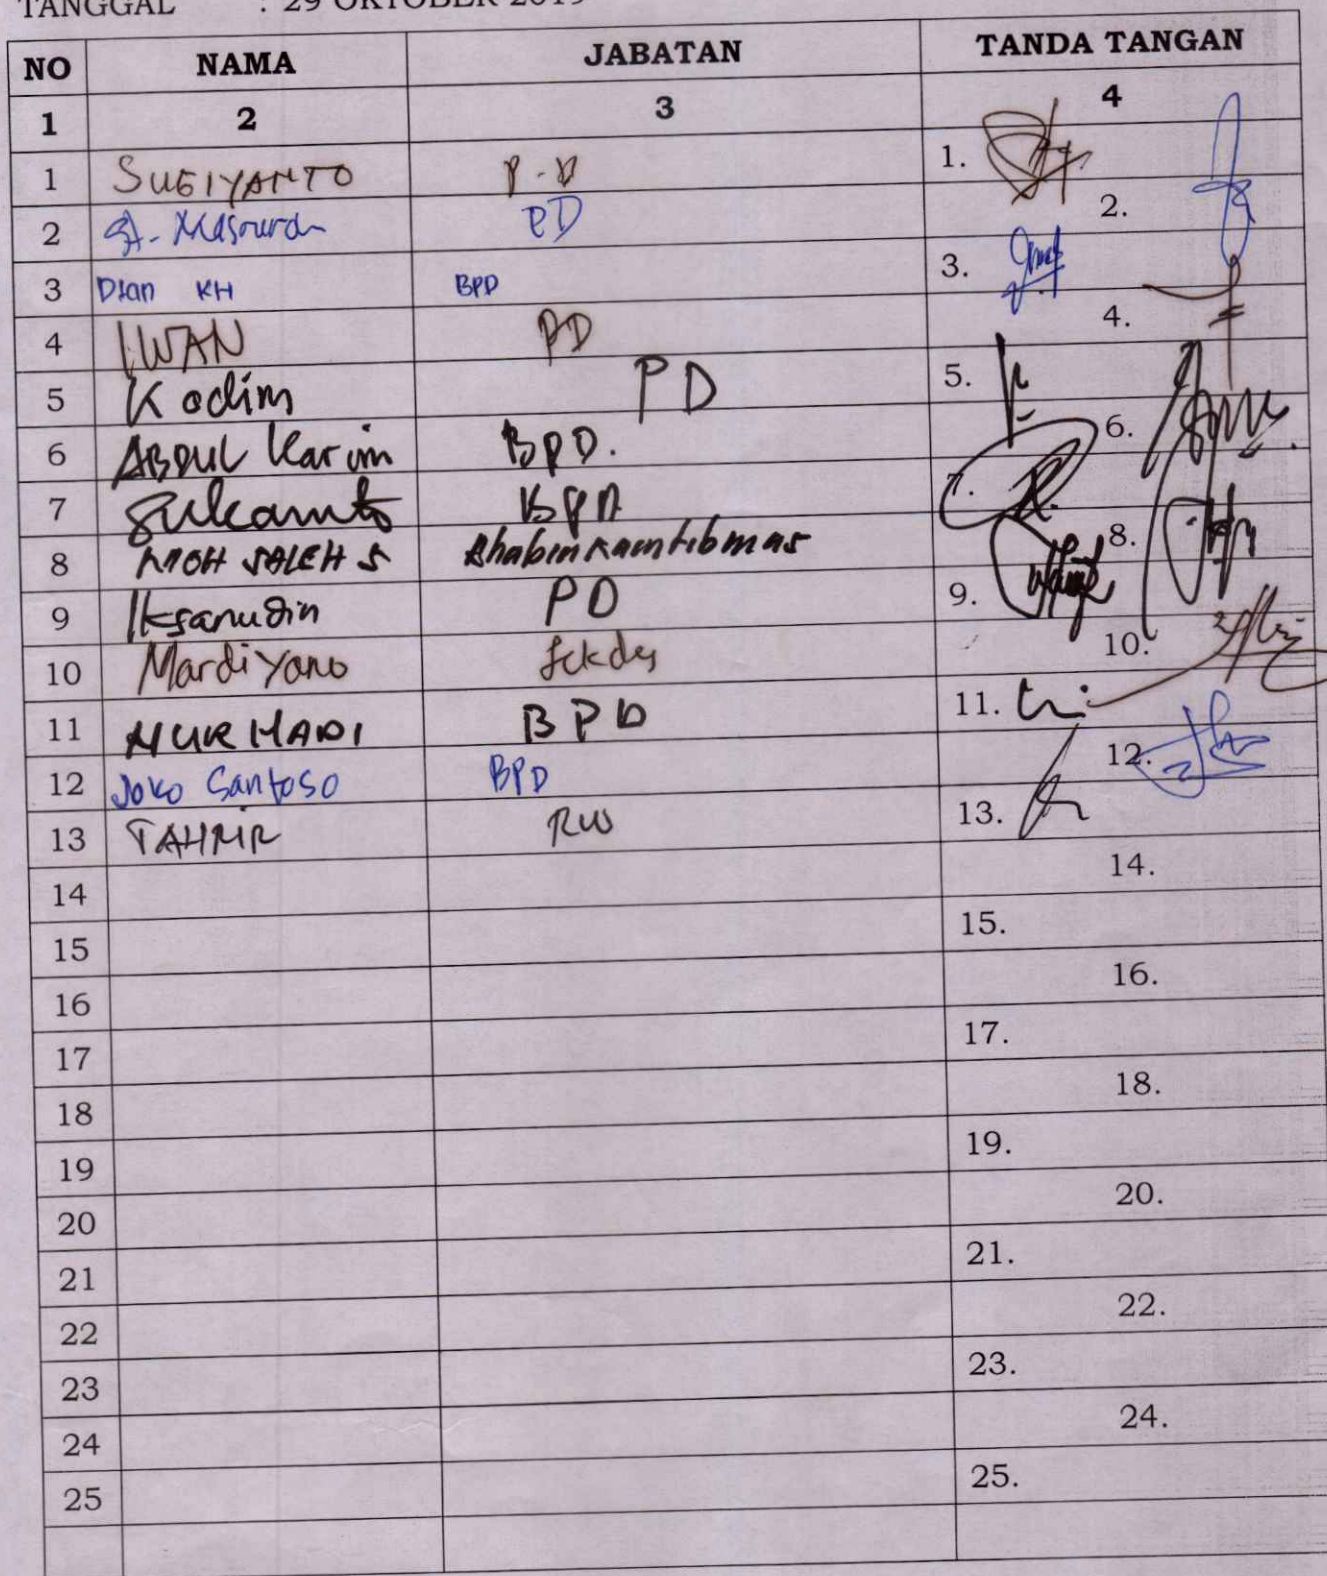 TANGGAL : 29 OKTOBER 2019
NO NAMA JABATAN TANDA TANGAN
1 2 3 4
1 SUGIYANTO P.D 1.
2 St. Masruroh PD 2.
3 Dian KH BPD 3.
4 IWAN PD 4.
5 Kodim PD 5.
6 ABDUL Karim BPD. 6.
7 Sukamto BPD 7.
8 MOH SALEH S Bhabinkamtibmas 8.
9 Iksanudin PD 9.
10 Mardiyono Sekdes 10.
11 NUR HADI BPD 11.
12 Joko Santoso BPD 12.
13 TAHRIR RW 13.
14 14.
15 15.
16 16.
17 17.
18 18.
19 19.
20 20.
21 21.
22 22.
23 23.
24 24.
25 25.